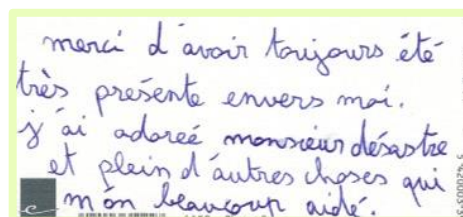 merci d'avoir toujours été
très présente envers moi.
j'ai adoreé monsieur désastre
et plein d'autres choses qui
m'ón beaucoup aidé.